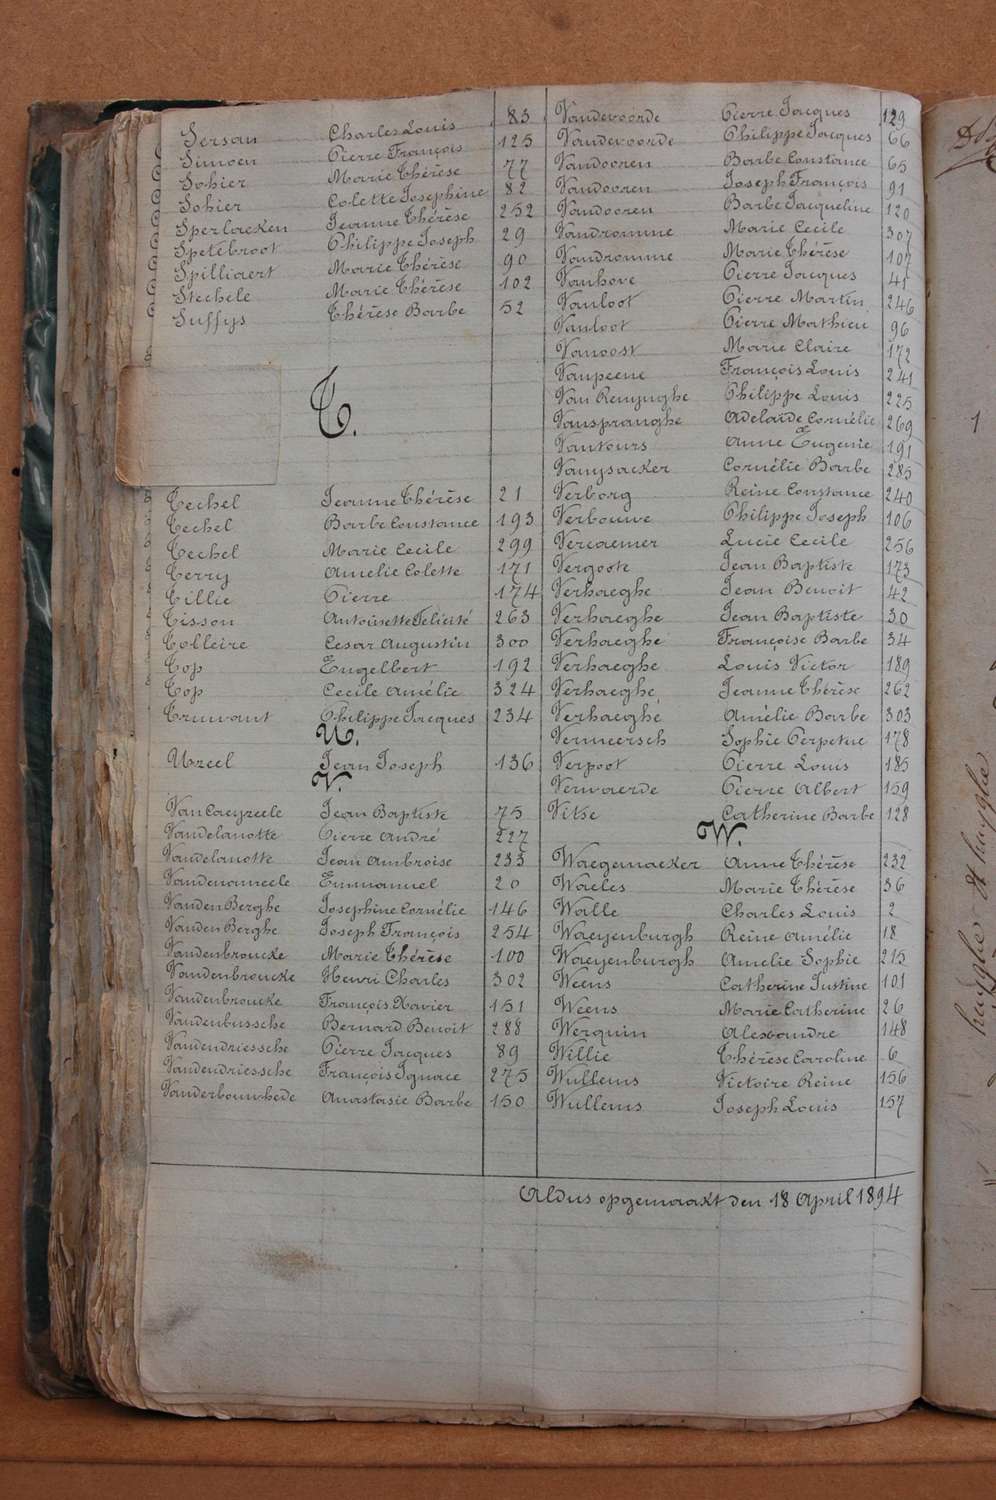 Sersan Charles Louis 83
Simoen Pierre François 125
Sohier Marie Thérèse 77
Sohier Colette Josephine 82
Sperlaeken Jeanne Thérèse 252
Spetebroot Philippe Joseph 29
Spilliaert Marie Thérèse 90
Stechele Marie Thérèse 102
Suffys Thérèse Barbe 52
T.
Techel Jeanne Thérèse 21
Techel Barbe Constance 193
Techel Marie Cecile 299
Terry Amelie Colette 171
Tillie Pierre 174
Tisson Antoinette Felicité 263
Tolleire Cesar Augustin 300
Top Engelbert 192
Top Cecile Amélie 324
Truwant Philippe Jacques 234
U.
Uzeel Jean Joseph 136
V.
Van Caeyzeele Jean Baptiste 75
Vandelanotte Pierre André 227
Vandelanotte Jean Ambroise 233
Vandenameele Emmanuel 20
Vanden Berghe Josephine Cornélie 146
Vanden Berghe Joseph François 254
Vandenbroucke Marie Thérèse 100
Vandenbroucke Henri Charles 302
Vandenbroucke François Xavier 151
Vandenbussche Bernard Benoit 288
Vandendriessche Pierre Jacques 89
Vandendriessche François Ignace 275
Vanderbouwhede Anastasie Barbe 150
Vandevoorde Pierre Jacques 129
Vandevoorde Philippe Jacques 66
Vandooren Barbe Constance 65
Vandooren Joseph François 91
Vandooren Barbe Jacqueline 120
Vandromme Marie Cecile 307
Vandromme Marie Thérèse 107
Vanhove Pierre Jacques 41
Vanloot Pierre Martin 246
Vanloot Pierre Mathieu 96
Vanoost Marie Claire 172
Vanpeene François Louis 241
Van Renynghe Philippe Louis 225
Vanspranghe Adelaïde Cornélie 269
Vantours Anne Eugenie 191
Vanysacker Cornélie Barbe 285
Verborg Reine Constance 240
Verbouwe Philippe Joseph 106
Vercaemer Lucie Cecile 256
Vergoote Jean Baptiste 173
Verhaeghe Jean Benoit 42
Verhaeghe Jean Baptiste 30
Verhaeghe Françoise Barbe 34
Verhaeghe Louis Victor 189
Verhaeghe Jeanne Thérèse 262
Verhaeghe Amélie Barbe 303
Vermeersch Sophie Perpetue 178
Verpoot Pierre Louis 185
Verwaerde Pierre Albert 159
Vitse Catherine Barbe 128
W.
Waegemaeker Anne Thérèse 232
Waeles Marie Thérèse 36
Walle Charles Louis 2
Waeyenburgh Reine Amélie 18
Waeyenburgh Amelie Sophie 215
Weens Catherine Justine 101
Weens Marie Catherine 26
Werquin Alexandre 148
Willie Thérèse Caroline 6
Wullems Victoire Reine 156
Wullems Joseph Louis 157
Aldus opgemaakt den 18 April 1894
1